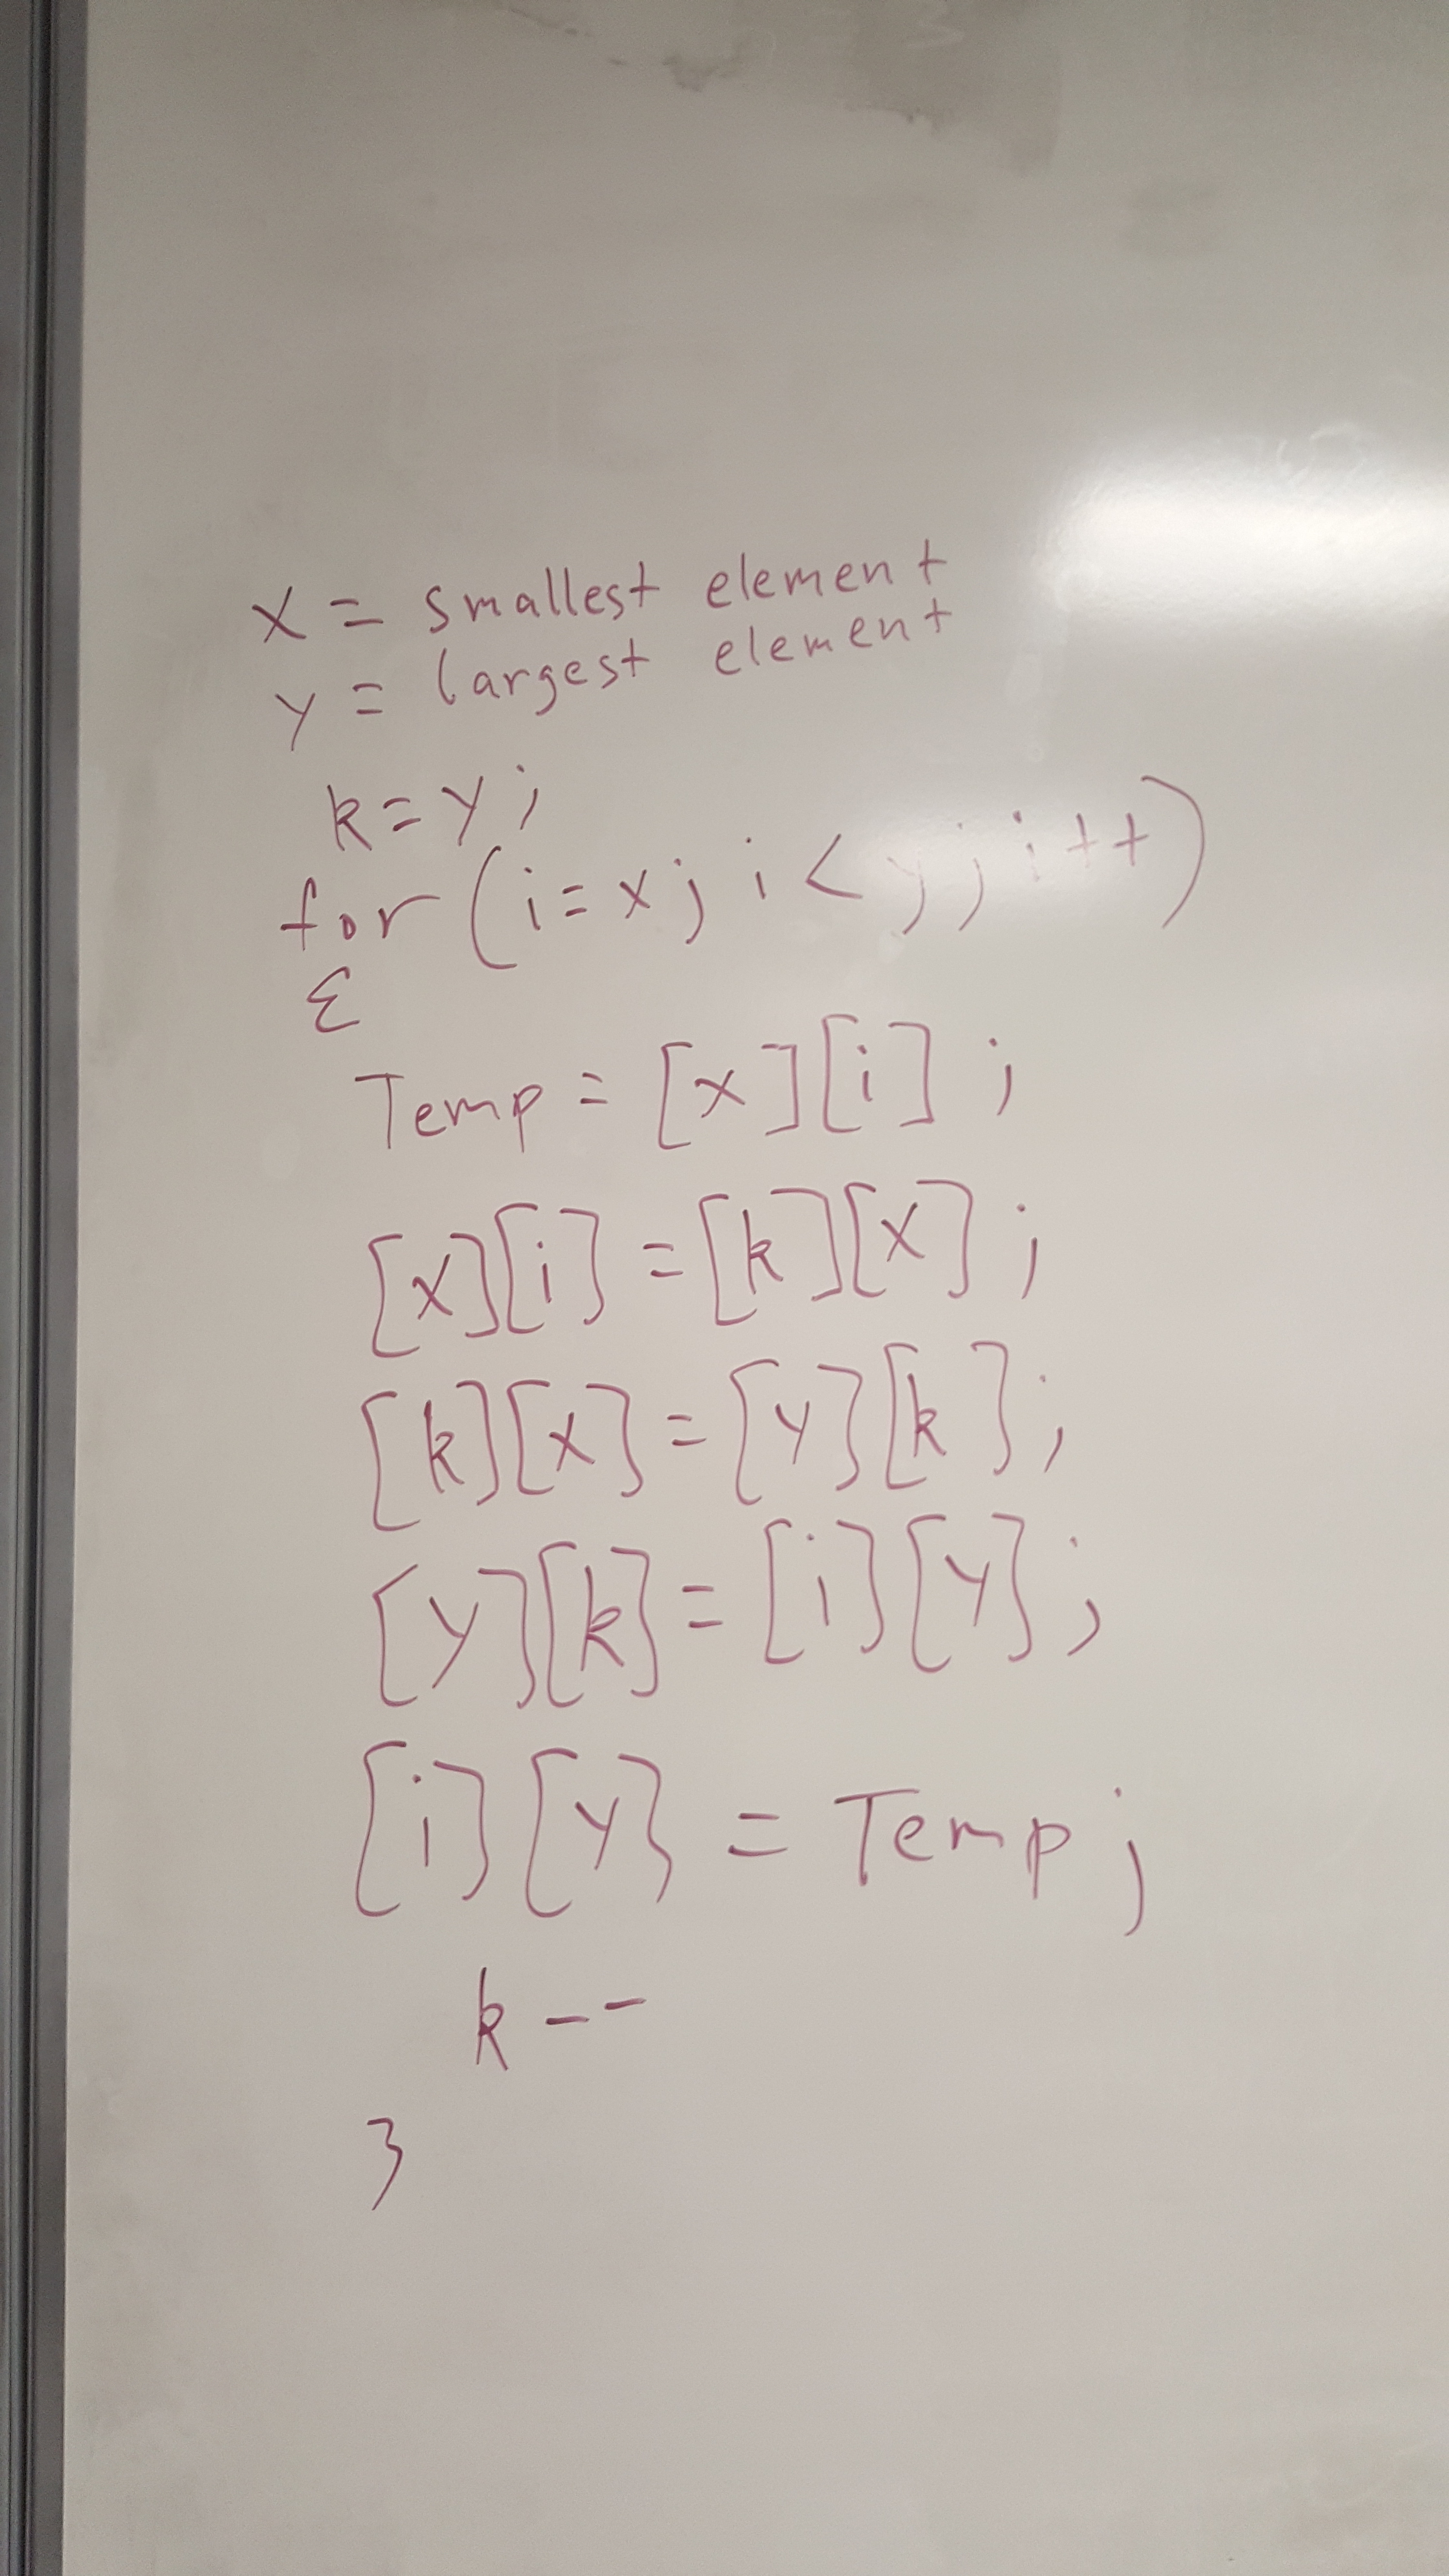 x = smallest element
y = largest element
k = y;
for (i = x; i < y; i++)
{
Temp = [x][i];
[x][i] = [k][x];
[k][x] = [y][k];
[y][k] = [i][y];
[i][y] = Temp;
k--
}